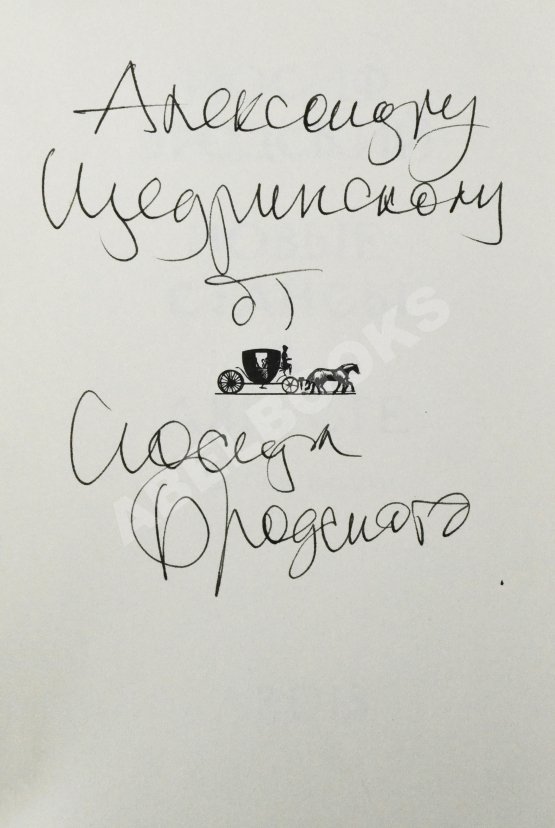 Александру
Щедринскому
от
Иосифа
Бродского
ABLE BOOKS